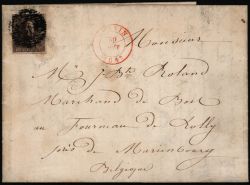 Monsieur
Mr J. Bte Roland
Marchand de Bois
au Fourneau de
près de Mariembourg
Belgique